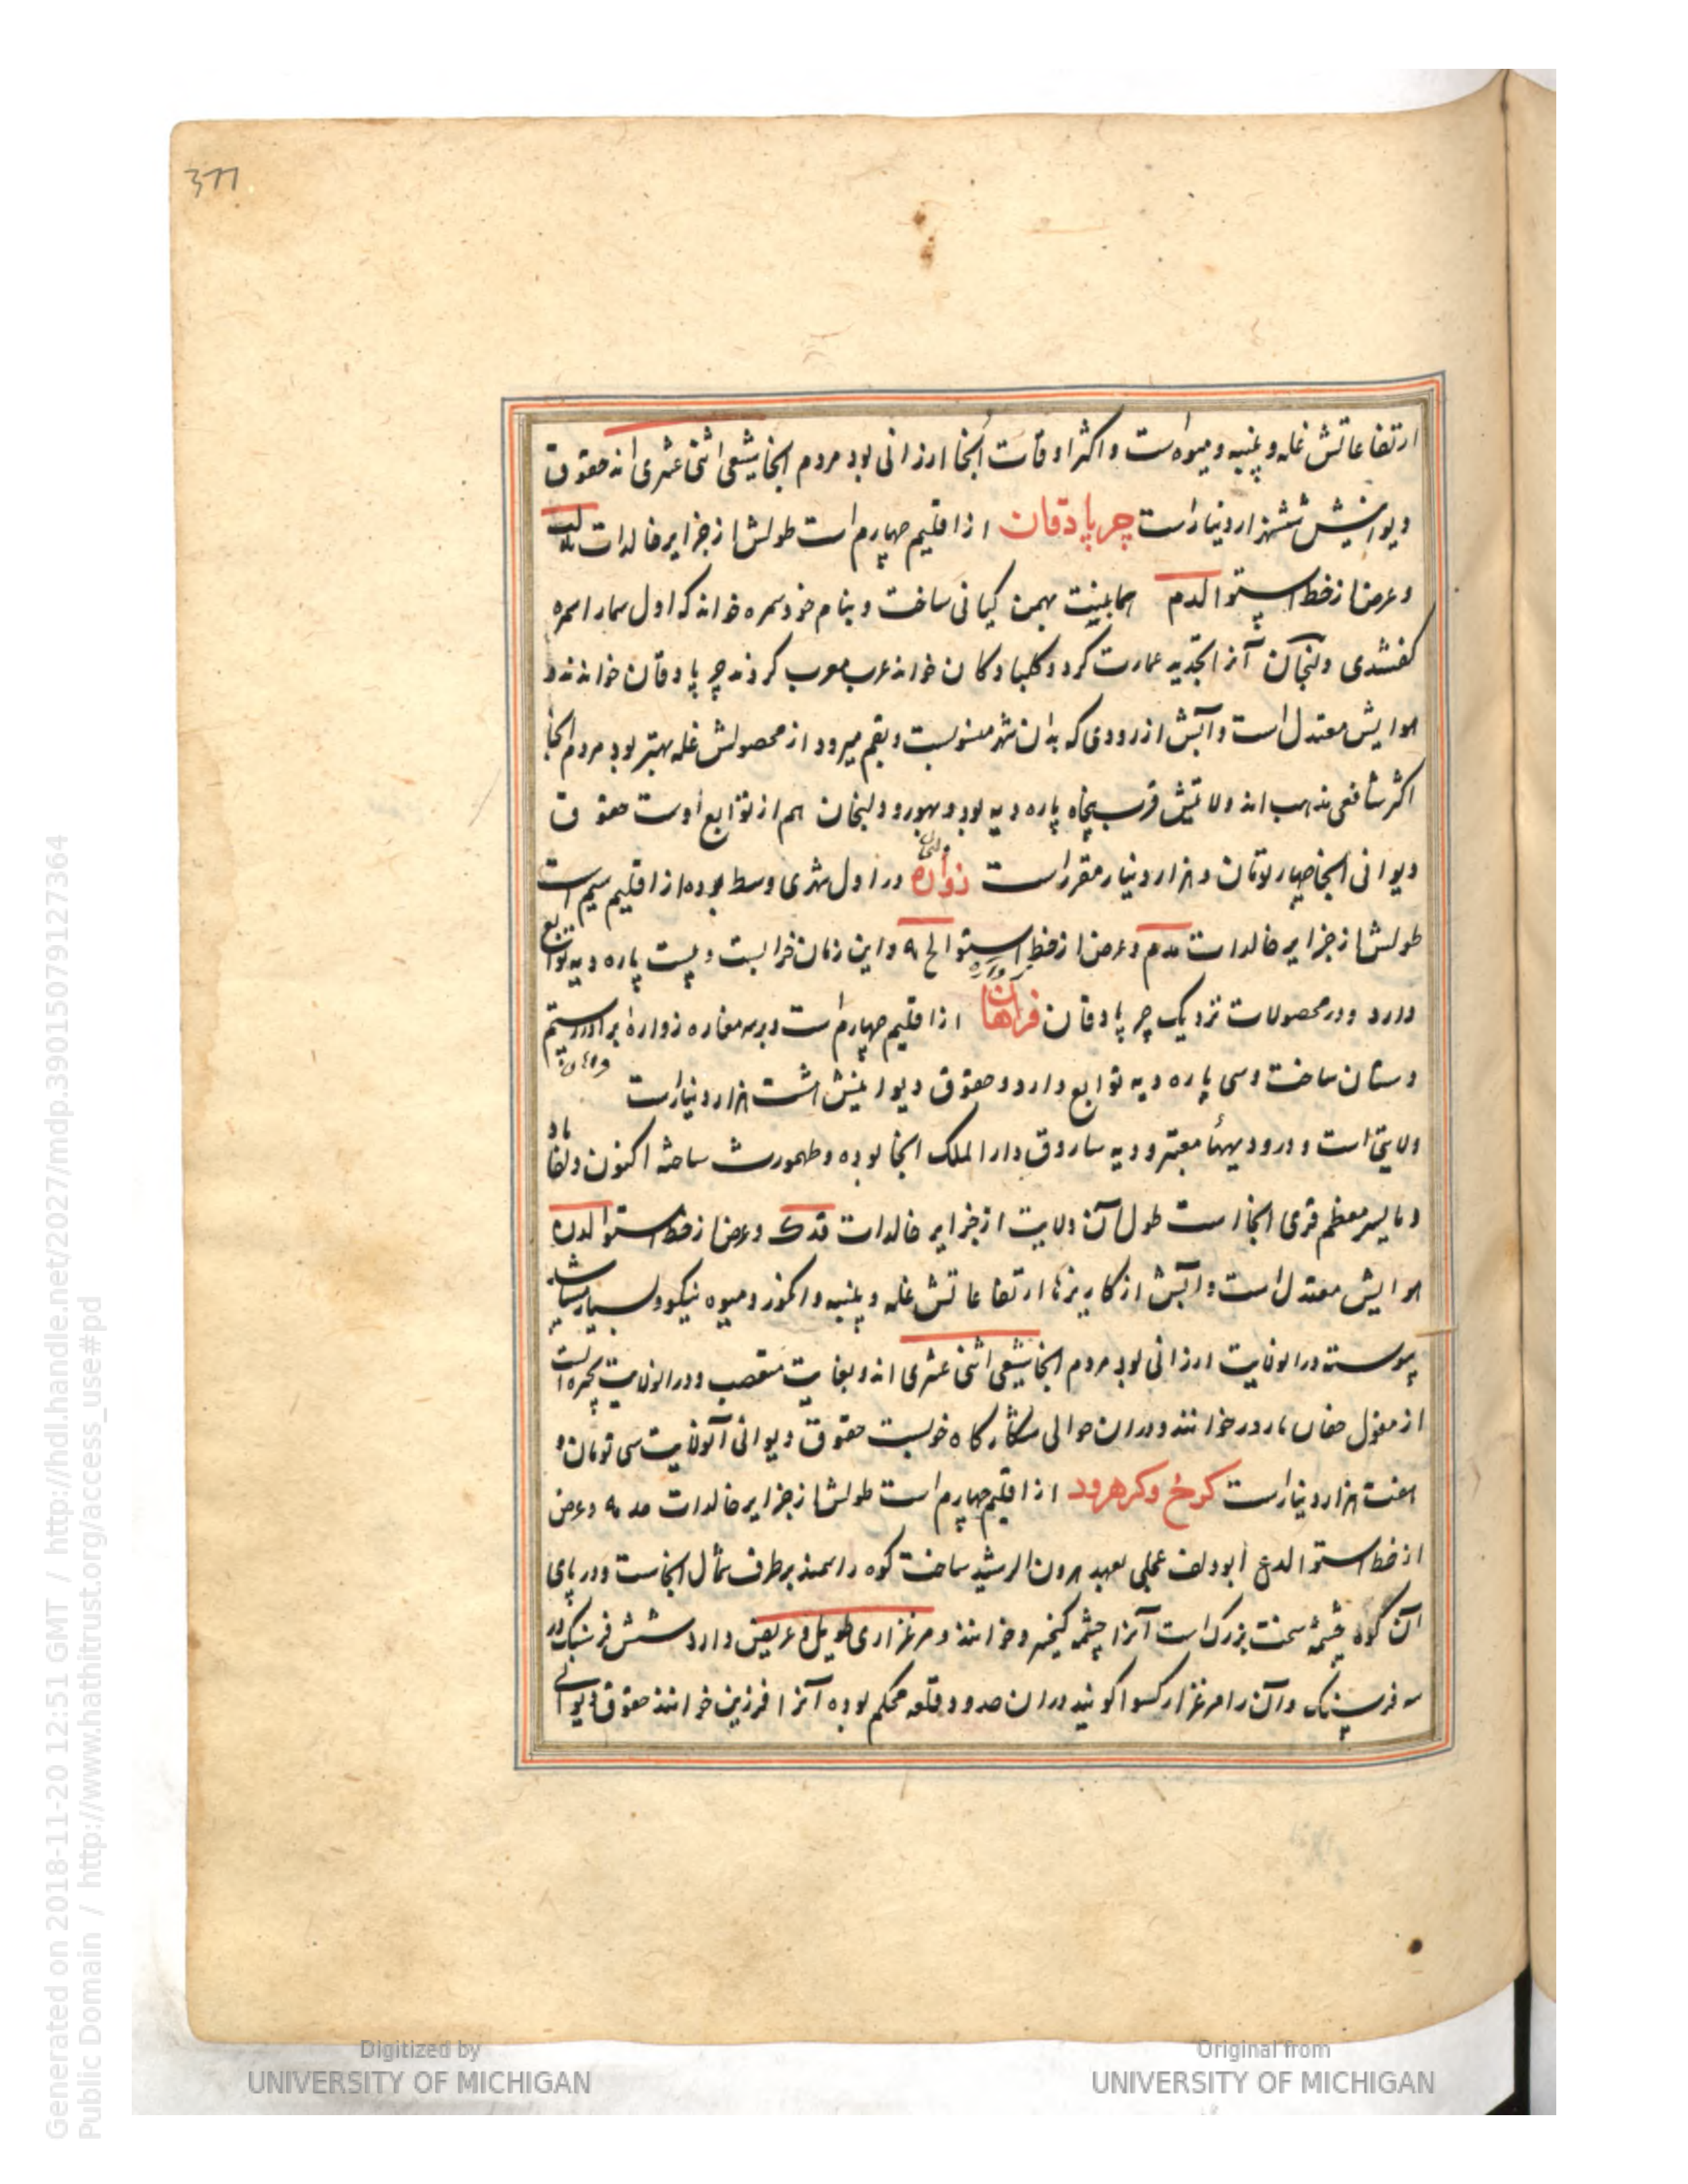 377
ارتفاعاتش غله و پنبه و میوه است و اکثر اوقات آنجا ارزانی بود مردم آنجا شیعی اثنی عشری اند حقوق
دیوانیش ششهزار دینار است جرپادقان از اقلیم چهارم است طولش از جزایر خالدات
و عرض از خط استوا لدم همای بنت بهمن کیانی ساخت و بنام خود سمره خواند که اول همارا سمره
گفتندی و دلنجان آنرا تجدید عمارت کرد و کلبادکان خواند عرب معرب کردند جرپادقان خوانند و
هوایش معتدل است و آبش از رودی که بدان شهر منسوبست و بقم میرود از محصولش غله بهتر بود مردم آنجا
اکثر شافعی مذهب اند ولایتش قرب پنجاه پاره دیه بود و دلنجان هم از توابع اوست حقوق
دیوانی آنجا چهار تومان و هزار دینار مقرر است زواره در اول شهری وسط بوده از اقلیم سیم است
طولش از جزایر خالدات مدم و عرض از خط استوا لح ۹ و این زمان خرابست و بیست پاره دیه توابع
دارد و در محصولات نزدیک جرپادقان فراهان از اقلیم چهارم است دبره مغاره زواره برادر رستم
دستان ساخت و سی پاره دیه توابع دارد و حقوق دیوانیش هشت هزار دینار است
ولایتی است و درو دیهها معتبر و دیه ساروق دار الملک آنجا بوده و طهمورث ساخته اکنون دلفاباد
و ماسیر معظم قری آنجا است طول آن ولایت از جزایر خالدات فدک و عرض از خط استوا لدن
هوایش معتدل است و آبش از کاریزها ارتفاعاتش غله و پنبه و انگور و میوه نیکو و بسیار باشد
پیوسته در آن ولایت ارزانی بود مردم آنجا شیعی اثنی عشری اند و بغایت متعصب و در آن ولایت بحیره است
از مغول ناردر خوانند و در آن حوالی شکارگاه خوبست حقوق دیوانی آن ولایت سی تومان و
هفت هزار دینار است کرخ و کرهرود از اقلیم چهارم است طولش از جزایر خالدات مد مه و عرض
از خط استوا لدع ابودلف عجلی بعهد هرون الرشید ساخت کوه راسمند بر طرف شمال آنجاست و در پای
آن کوه چشمه سخت بزرگ است آنرا چشمه کیخسرو خوانند و مرغزاری طویل و عریض دارد شش فرسنگ در
سه فرسنگ و آن را مرغزار کسوا گویند در آن حدود قلعه محکم بوده آنرا فرزین خوانند حقوق دیوانی
Generated on 2018-11-20 12:51 GMT / http://hdl.handle.net/2027/mdp.39015079127364
Public Domain / http://www.hathitrust.org/access_use#pd
Digitized by
UNIVERSITY OF MICHIGAN
Original from
UNIVERSITY OF MICHIGAN